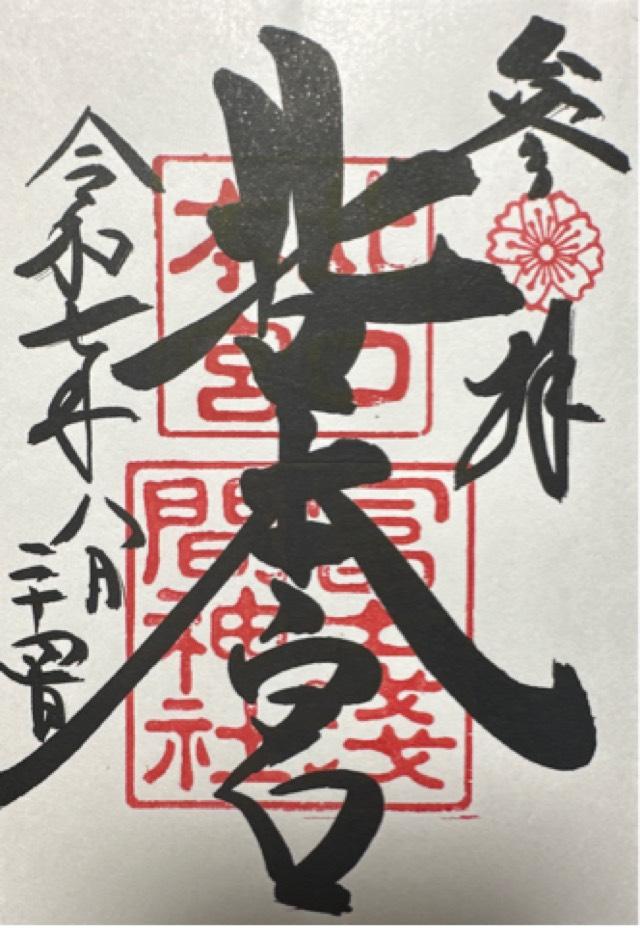 参拝
北口本宮
北口
本宮
冨士淺
間神社
令和七年八月二十四日